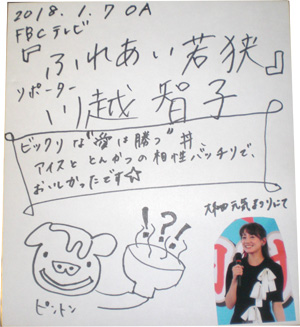 2018.1.7 OA
FBCテレビ
『ふれあい若狭』
リポーター
川越 智子
ビックリな"愛は勝つ"丼、
アイスととんかつの相性バッチリで、
おいしかったです☆
!?!
大和田元気まつりにて
ピントン